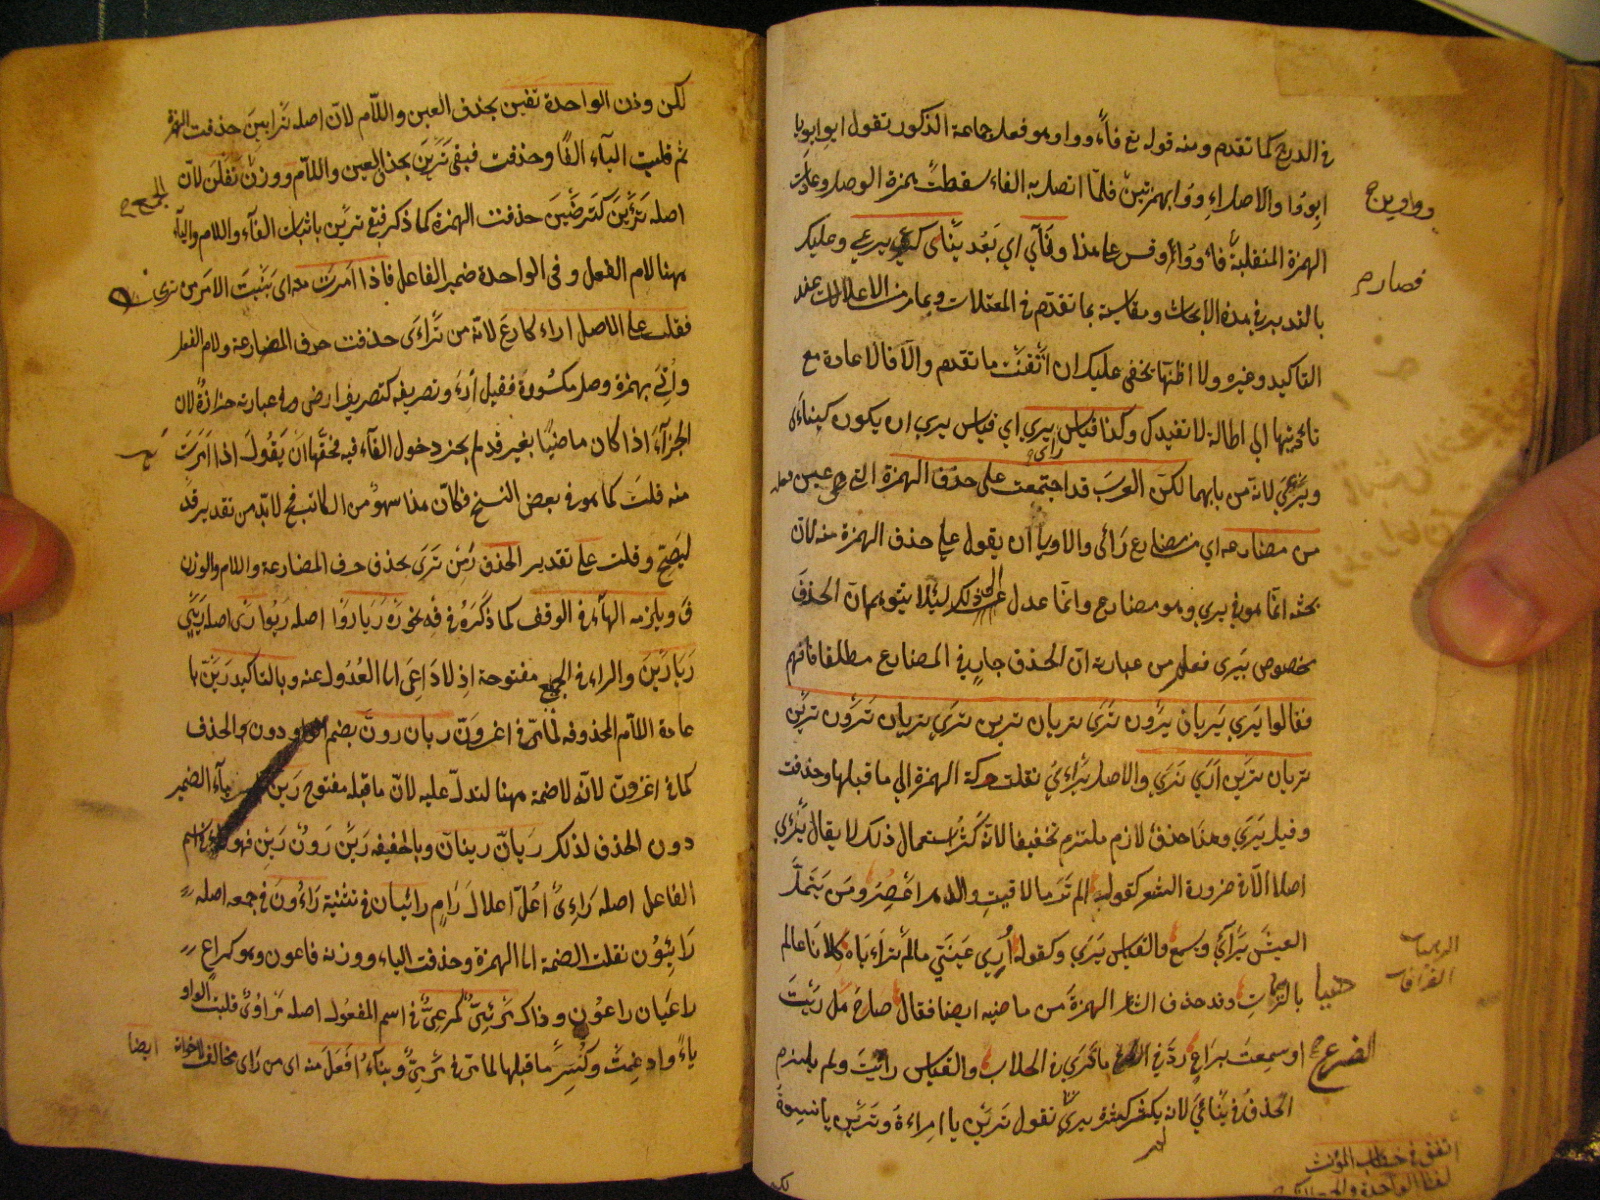 في الدرج كما تقدم ومنه قوله تع فأووا وهو فعل جماعة الذكور تقول ايو ايويا
ايووا والاصل اءوووا بهمزتين فلما اتصل به الفاء سقطت همزة الوصل وعادت
الهمزة المنقلبة فأووا وقس على هذا ونأي اي بعد ينأى كرعى يرعى وعليك
بالتدبر في هذه الابحاث ومقايسة بما تقدم في المعتلات وبما مر من الاعلالات عند
التاكيد وغيره ولا اظنها تخفى عليك ان اتقنت ما تقدم والا فالاعادة مع
تأديتها الى اطالة لا تفيدك وكذا قياس يرى اي قياس يرى ان يكون كينأى
ويرعى لانه من بابهما لكن العرب قد اجتمعت على حذف الهمزة التي هي عين فعله
من مضارعه اي مضارع رأى والاولى ان يقول على حذف الهمزة منه لان
بحثه انما هو في يرى وهو مضارع وانما عدل عن ذلك لئلا يتوهم ان الحذف
مخصوص بيرى فعلم من عبارته ان الحذف جار في المضارع مطلقا فافهم
فقالوا يرى يريان يرون ترى تريان يرين ترى تريان ترون ترين
تريان ترين أرى نرى والاصل يرأى نقلت حركة الهمزة الى ما قبلها وحذفت
وقيل يرى وهذا حذف لازم ملتزم تخفيفا لانه كثر استعمال ذلك لا يقال يرأى
اصلا الا في ضرورة الشعر كقوله الم تر ما لاقيت والدهر اعصر ومن يتمل
العيش يرأى ويسمع والقياس يرى وكقوله أري عيني ما لم ترأياه كلانا عالم
بالترهات وقد حذف الشاعر الهمزة من ماضيه ايضا فقال صاح هل ريت
او سمعت براع رد في الضرع ما قرى في الحلاب والقياس رأيت ولم يلتزم
الحذف في ينأى لانه لم يكثر كثرة يرى تقول ترين يا امراة وترين يا نسوة
وواوين
فصار
هيا
الضرع
اتفق في خطاب المؤنث
لفظ الواحدة والجمع
لكن
لكن وزن الواحدة تفين بحذف العين واللام لان اصله ترايين حذفت الهمزة
ثم قلبت الياء الفا وحذفت فبقي ترين بحذف العين واللام ووزن تفلن لان
الجمع
اصله ترأين كترضين حذفت الهمزة كما ذكر فبقي ترين باثبات الفاء واللام والياء
ههنا لام الفعل وفي الواحدة ضمير الفاعل فاذا امرت منه اي بنيت الامر من ترى
فقلت على الاصل ارء كارع لانه من ترأى حذفت حرف المضارعة ولام الفعل
واتي بهمزة وصل مكسورة فقيل ارء وتصريفه كتصريف ارض وفي عبارته حزازة لان
الجزاء اذا كان ماضيا بغير قد لم يجز دخول الفاء فيه فحقها ان يقول اذا امرت
منه قلت كما هو في بعض النسخ فكان هذا سهو من الكاتب فح لا بد من تقدير قد
ليصح وقلت على تقدير الحذف ر من ترى بحذف حرف المضارعة واللام والوزن
ف ويلزمه الهاء في الوقف كما ذكره في قه نحو ره ريا روا اصله ريوا ري اصله ريي
ريا رين والراء في الجمع مفتوحة اذ لا داعي الى العدول عنه وبالتاكيد رين با
عادة اللام المحذوفة لما مر في اغزون ريان رون بضم الواو دون الحذف
كما في اغزن لانه لا ضمة ههنا لتدل عليه لان ما قبله مفتوح رين بياء الضمير
دون الحذف لذلك ريان رينان وبالخفيفة رين رون رين فهو راء في اسم
الفاعل اصله رائي اعل اعلال رام رائيان في تثنيته راؤن في جمعه اصله
رائيون نقلت الضمة الى الهمزة وحذفت الياء ووزنه فاعون وهو كراع
راعيان راعون وذاك مرئي كمرعي في اسم المفعول اصله مرؤي قلبت الواو
ياء وادغمت وكسر ما قبلها لما مر في مرمي وبناء افعل منه اي من رأى مخالف لاخواته ايضا